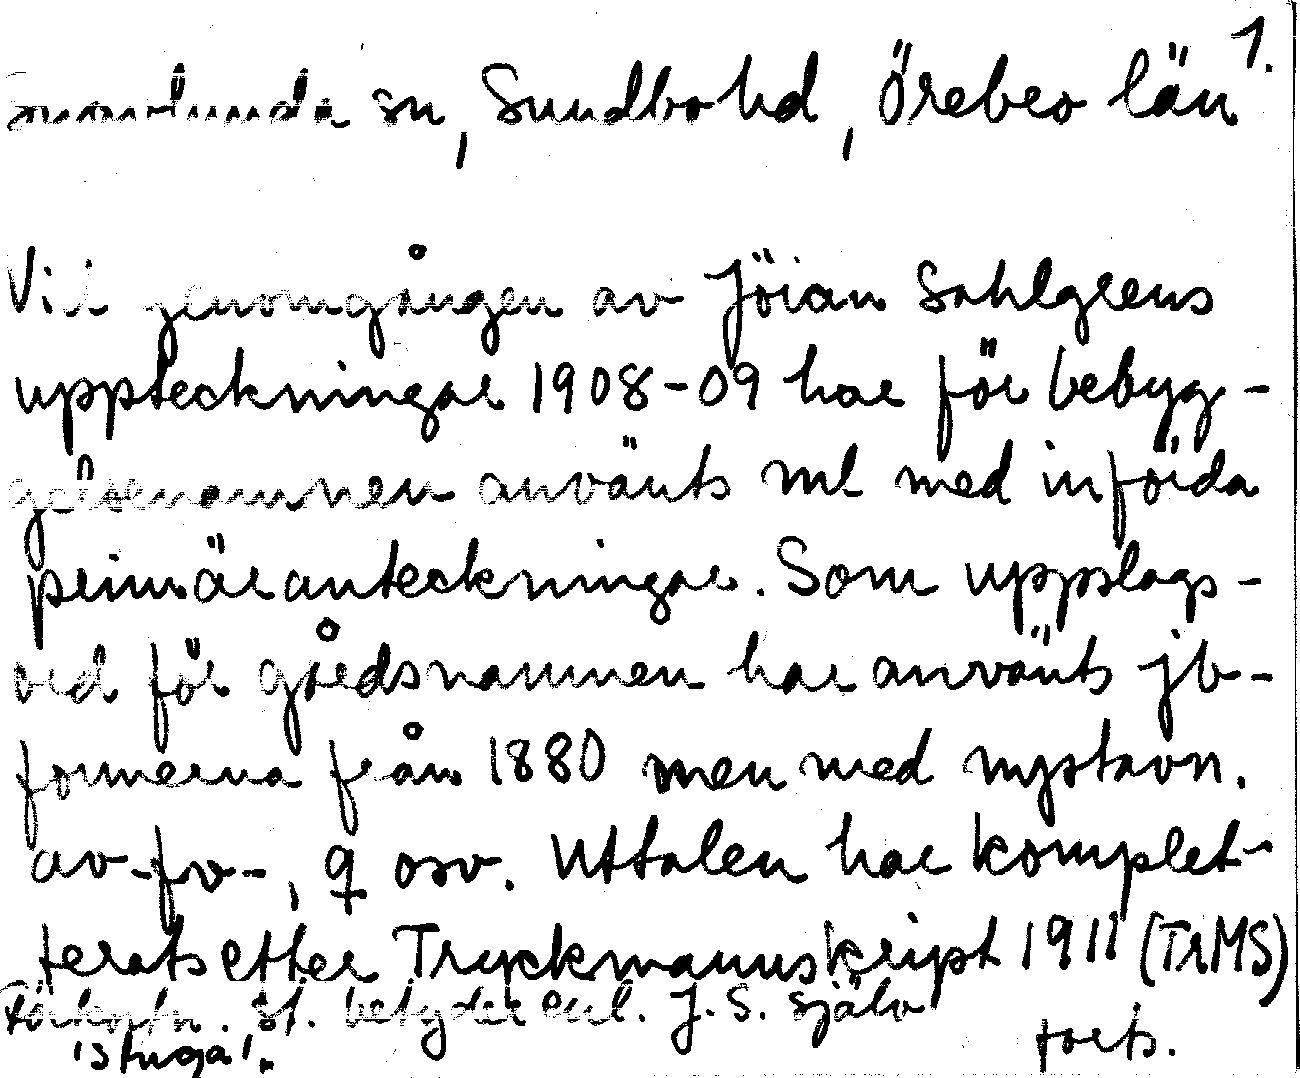 1.
sn, Sundbo hd, Örebro län
Vid genomgången av Jöran Sahlgrens
uppteckningar 1908-09 har för bebyg-
gelsenamnen använts ml med införda
primäranteckningar. Som uppslags-
ord för gårdsnamnen har använts jb-
formerna från 1880 men med nystavn.
av -fv-, q osv. Uttalen har komplet-
terats efter Tryckmanuskript 1911 (TrMS)
Förkortn. st. betyder enl. J. S. själv
'stuga'. forts.